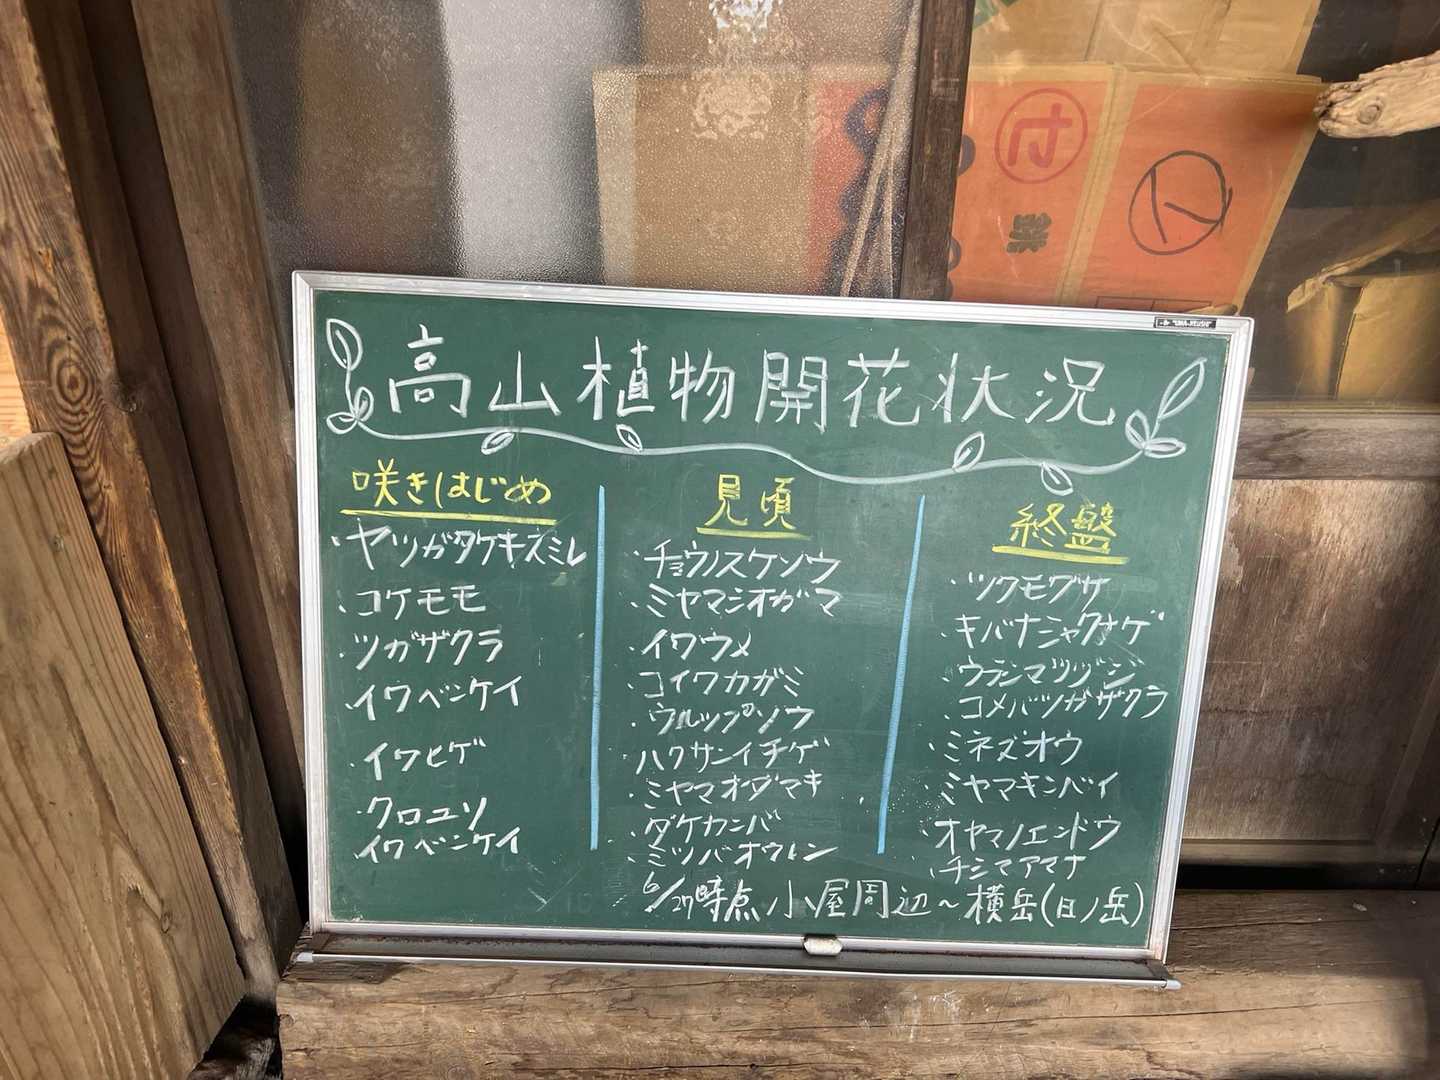 高山植物開花状況
咲きはじめ
・ヤツガタケキスミレ
・コケモモ
・ツガザクラ
・イワベンケイ
・イワヒゲ
・クロユリ
・イワベンケイ
見頃
・チョウノスケソウ
・ミヤマシオガマ
・イワウメ
・コイワカガミ
・ウルップソウ
・ハクサンイチゲ
・ミヤマオダマキ
・ダケカンバ
・ミツバオウレン
終盤
・ツクモグサ
・キバナシャクナゲ
・ウラシマツツジ
・コメバツガザクラ
・ミネズオウ
・ミヤマキンバイ
・オヤマノエンドウ
・チシマアマナ
6/27時点 小屋周辺～横岳(日ノ岳)
"UMA-JIRUSHI"